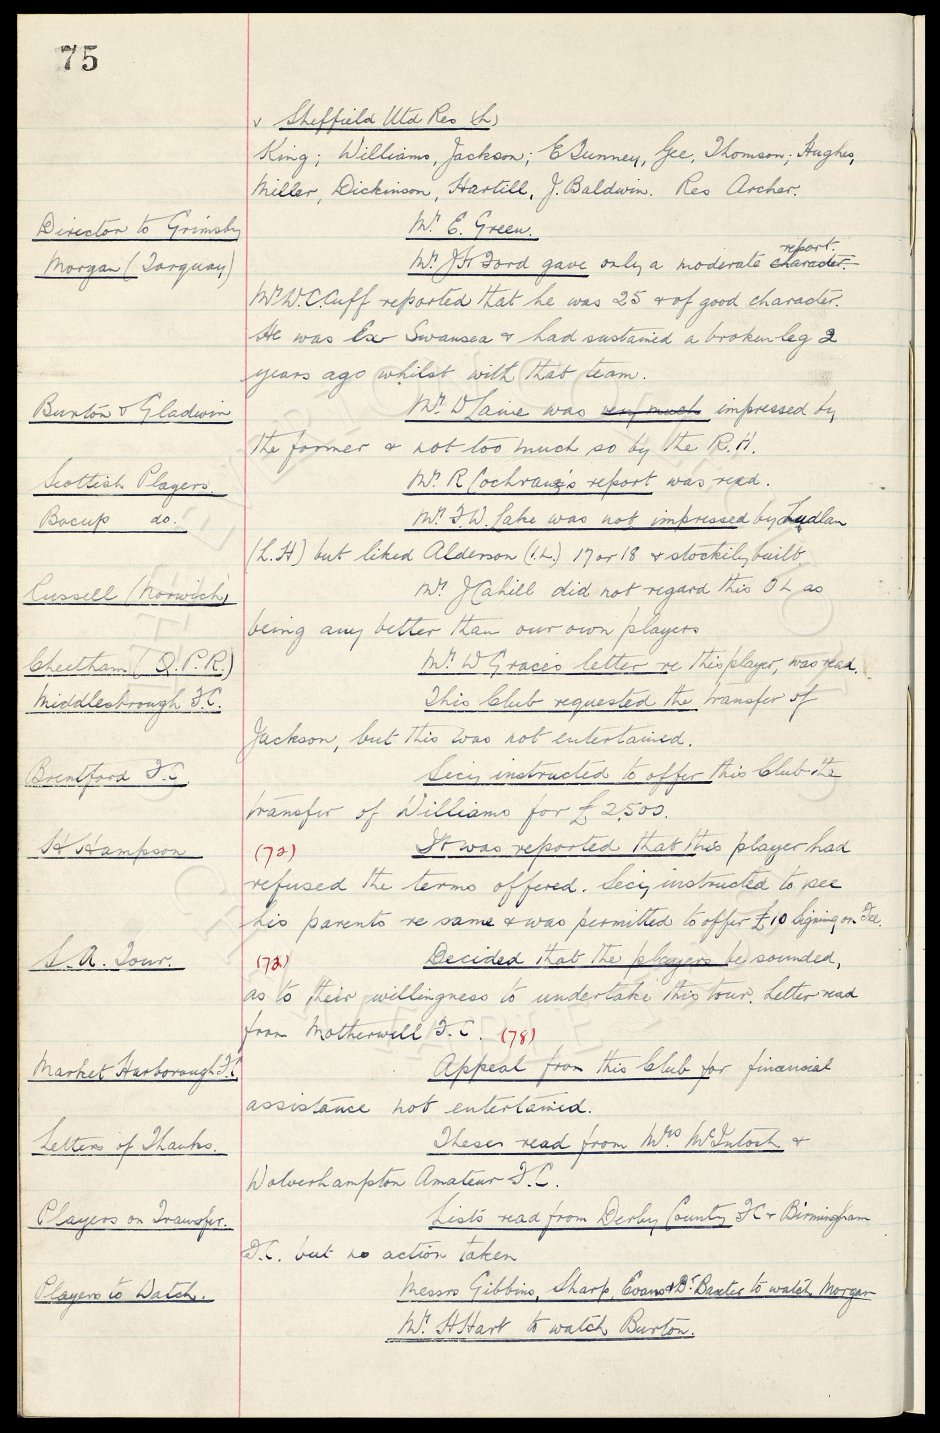 75
v Sheffield Utd Res (h)
King; Williams, Jackson; E Gunney, Gee, Thomson; Hughes,
Miller, Dickinson, Hartill, J. Baldwin. Res Archer.
Director to Grimsby Mr. E. Green.
Morgan (Torquay) Mr. J H Ford gave only a moderate character. report.
Mr. W.C. Cuff reported that he was 25 & of good character.
He was Ex Swansea & had sustained a broken leg 2
years ago whilst with that team.
Burton & Gladwin Mr. D Laine was very much impressed by
the former & not too much so by the R.H.
Scottish Players. Mr. R Cochrane's report was read.
Bacup do. Mr. F.W. Lake was not impressed by Ludlam
(L.H) but liked Alderson (I.L.) 17 or 18 & stockily built.
Russell (Norwich) Mr. J Cahill did not regard this O L as
being any better than our own players
Cheetham (Q.P.R.) Mr. W Grace's letter re this player, was read.
Middlesbrough F.C. This Club requested the transfer of
Jackson, but this was not entertained.
Brentford F.C. Secy instructed to offer this Club the
transfer of Williams for £2,500.
H Hampson (72) It was reported that this player had
refused the terms offered. Secy instructed to see
his parents re same & was permitted to offer £10 Signing on Fee.
S.A. Tour. (73) Decided that the players be sounded,
as to their willingness to undertake this tour. Letter read
from Motherwell F.C. (78)
Market Harborough F.C. Appeal from this Club for financial
assistance not entertained.
Letters of Thanks. These read from Mrs. McIntosh &
Wolverhampton Amateur F.C.
Players on Transfer. Lists read from Derby County FC & Birmingham
F.C. but no action taken
Players to Watch. Messrs Gibbins, Sharp, Evans & Dr. Baxter to watch Morgan
Mr. H Hart to watch Burton.